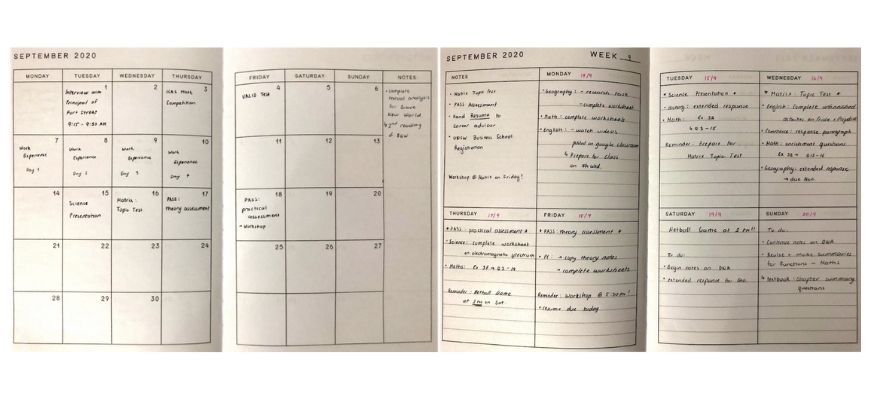 SEPTEMBER 2020
MONDAY TUESDAY WEDNESDAY THURSDAY
1
Interview with
Principal of
Fort Street
9:15 - 9:30 AM
2
3
ICAS Math
Competition
7
Work
Experience
Day 1
8
Work
Experience
Day 2
9
Work
Experience
Day 3
10
Work
Experience
Day 4
14
15
Science
Presentation
16
Maths:
Topic Test
17
PASS:
theory assessment
21 22 23 24
28 29 30
FRIDAY SATURDAY SUNDAY NOTES
4
VALID Test
5
6
• complete
textual analysis
for Brave
New World
↳ 2nd reading
of BNW
11 12 13
18
PASS:
practical
assessment
• Workshop
19 20
25 26 27
SEPTEMBER 2020 WEEK 9
NOTES
• Maths Topic Test
• PASS Assessment
• Hand Resume to
career advisor
• UNSW Business School
Registration
Workshop @ Robit on Friday!
MONDAY 14/9
• Geography: - research task
- complete worksheet
• Math: complete worksheets
• English: - watch videos
posted on google classroom
↳ Prepare for class
THURSDAY 17/9
* PASS: practical assessment *
• Science: complete worksheet
on electromagnetic spectrum
• Maths: Ex 3F
Reminder: Netball Game
at 2pm on Sat.
FRIDAY 18/9
* PASS: theory assessment *
• PE: - copy theory notes
- complete worksheets
Reminder: Workshop @ 5:30pm!
• resume due today
TUESDAY 15/9
* Science Presentation *
• History: extended response
• Math: Ex 3A
Reminder: Prepare for
Maths Topic Test
WEDNESDAY 16/9
* Maths: Topic Test *
• English: complete
• Commerce: response paragraph
• Math: enrichment questions
• Geography: extended response
→ due Mon.
SATURDAY 19/9
Netball Game at 2pm!!
To do:
• Begin notes on DNA
• extended response for Geo.
SUNDAY 20/9
To do:
• Continue notes on DNA
• Revise + make summaries
for Functions - Maths
↳ Textbook: Chapter summary
questions